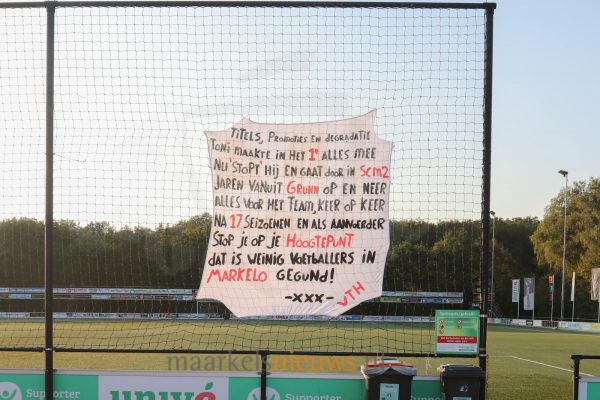 TITELS, PROMOTIES EN DEGRADATIE
TONI MAAKTE IN HET 1e ALLES MEE
NU 'STOPT' HIJ EN GAAT DOOR IN SCM2
JAREN VANUIT GRUNN OP EN NEER
ALLES VOOR HET TEAM, KEER OP KEER
NA 17 SEIZOENEN EN ALS AANVOERDER
STOP JE OP JE HOOGTEPUNT
DAT IS WEINIG VOETBALLERS IN
MARKELO GEGUND!
-xxx- VTH
maarkelsnieuws
Supporter
univé
Supporter